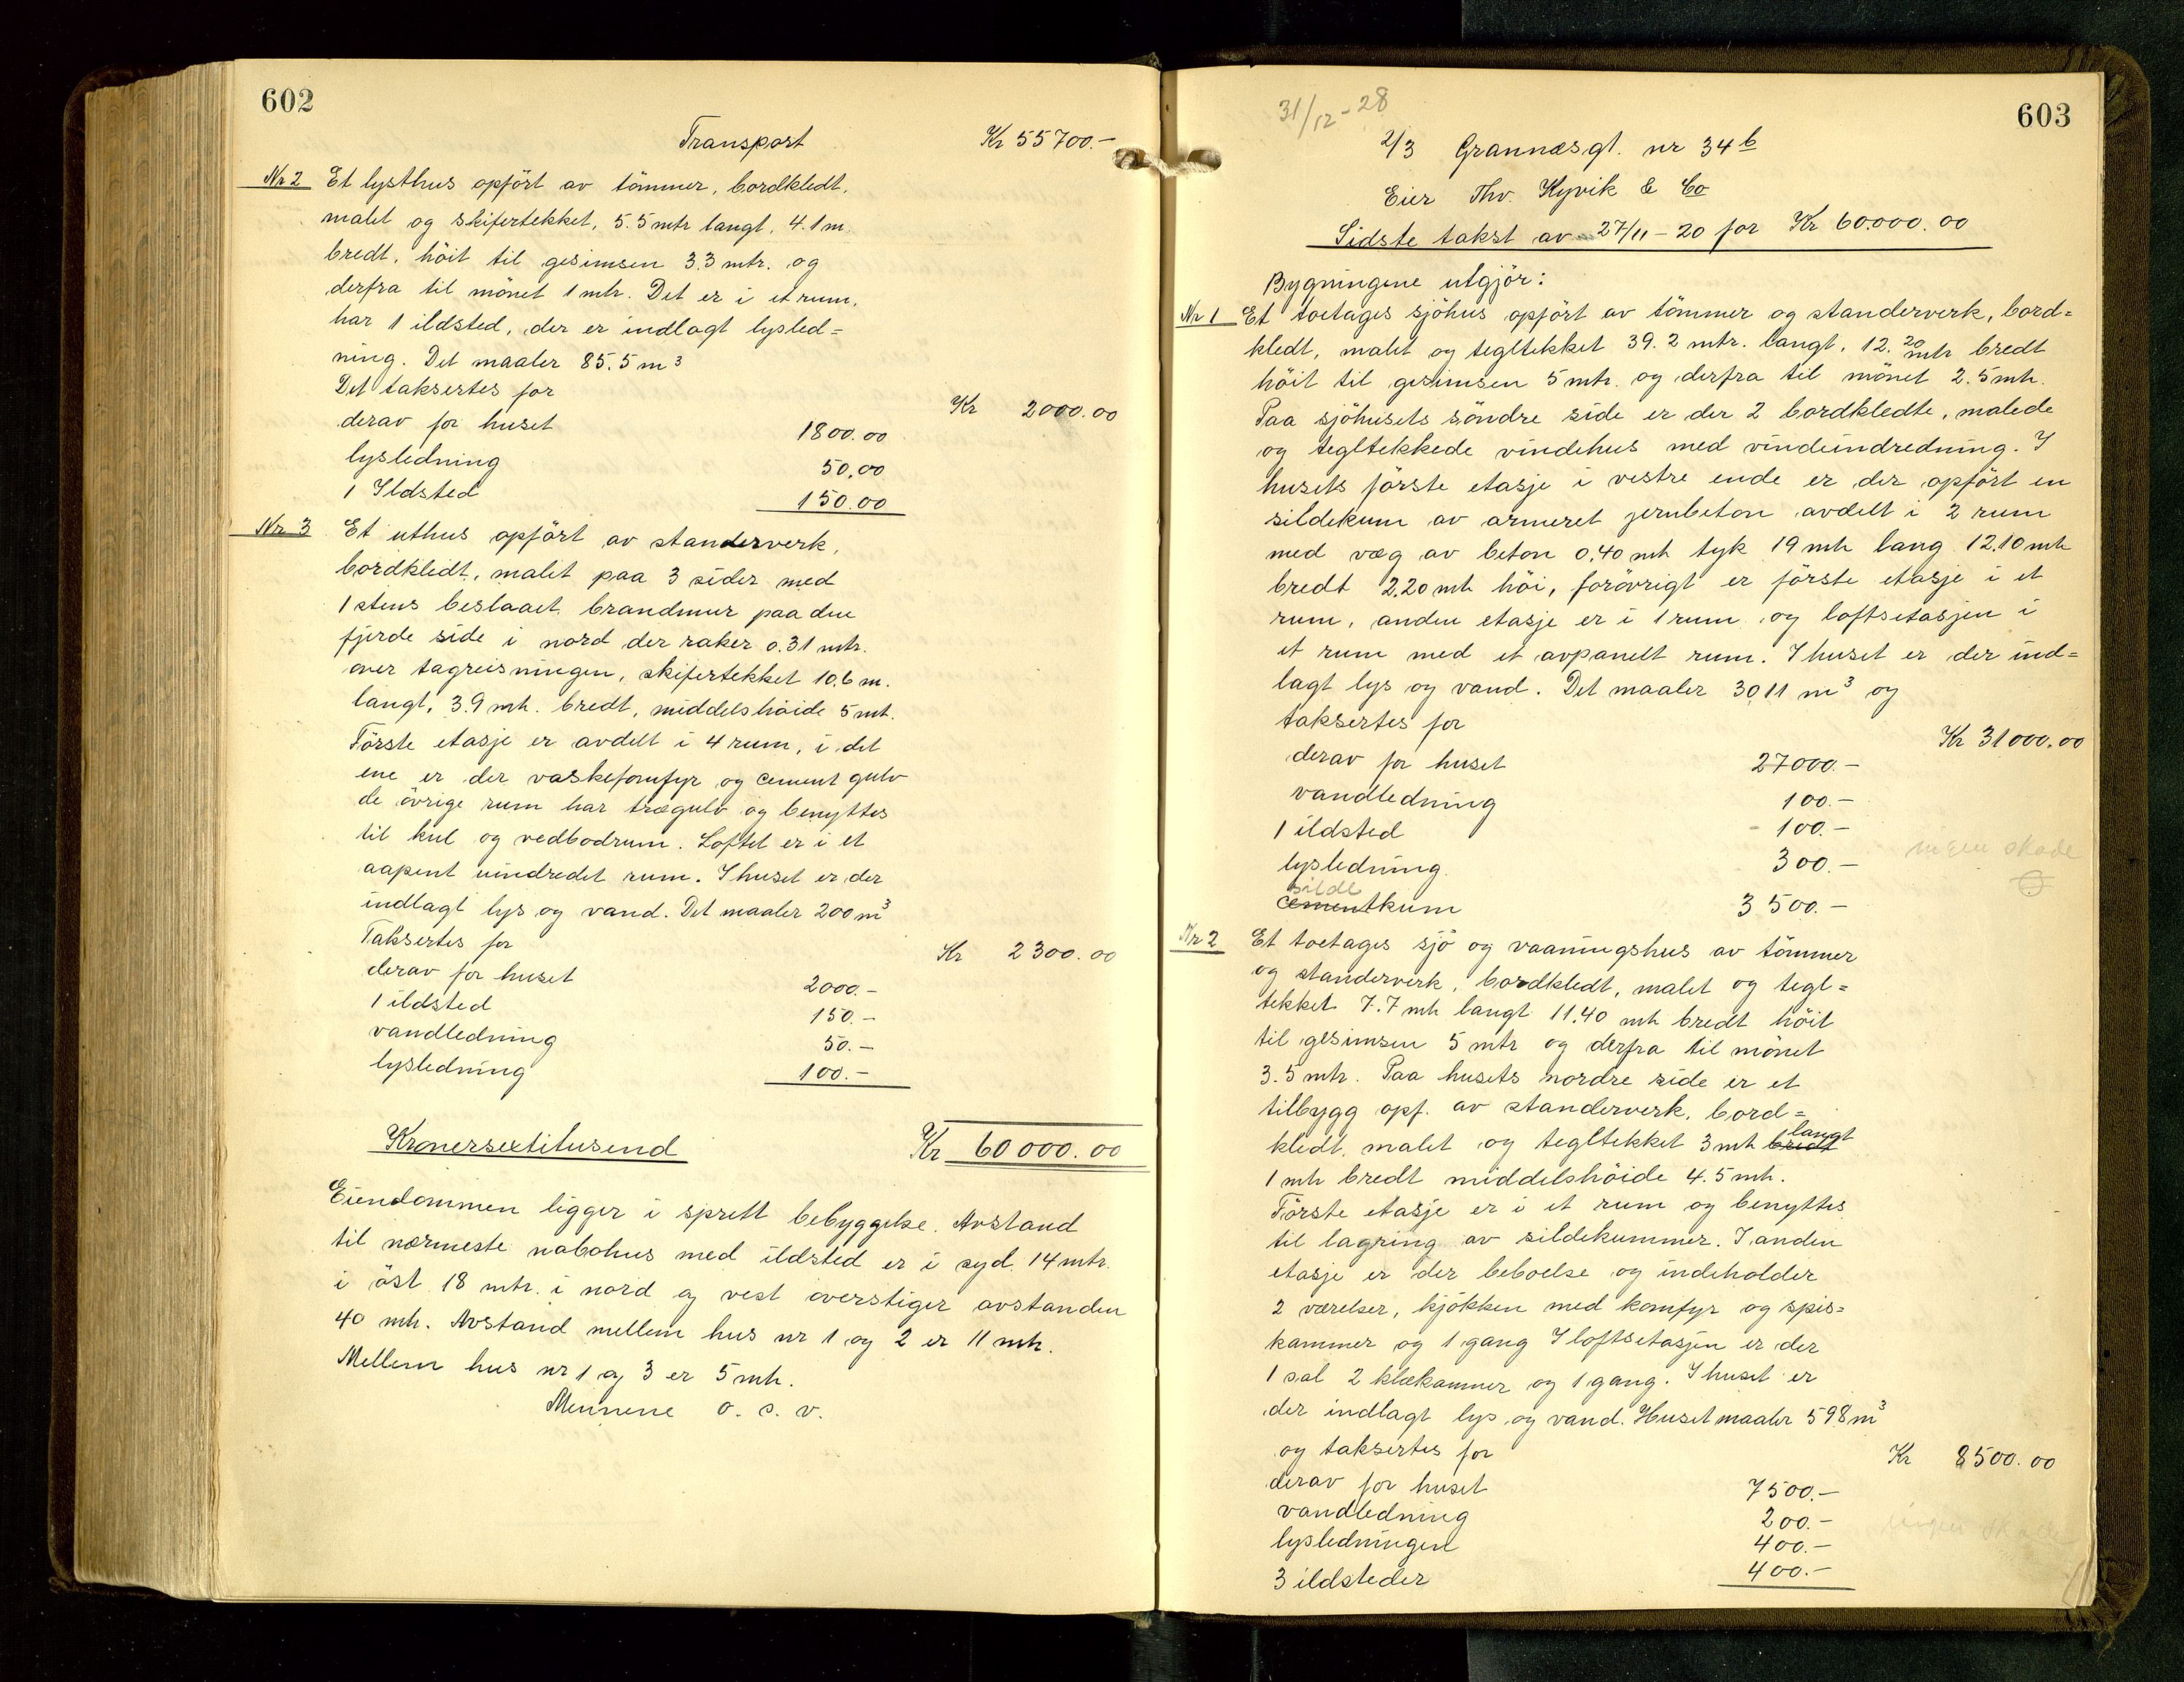 602
Transport Kr 55700.-
Nr 2 Et lysthus opfört av tömmer, bordkledt,
malet og skifertekket, 5.5 mtr langt, 4.1 m
bredt, höit til gesimsen 3.3 mtr. og
derfra til mönet 1 mtr. Det er i et rum,
har 1 ildsted, der er indlagt lysled=
ning. Det maaler 85.5 m3
Det taksertes for Kr 2000.00
derav for huset 1800.00
lysledning 50.00
1 Ildsted 150.00
Nr 3 Et uthus opfört av standerverk,
bordkledt, malet paa 3 sider med
1 stens beslaaet brandmur paa den
fjerde side i nord der raker 0.31 mtr.
over tagreisningen, skifertekket 10.6 m.
langt, 3.9 mtr. bredt, middelshöide 5 mt.
Förste etasje er avdelt i 4 rum, i det
ene er der vaskefomfyr og cement gulv
de övrige rum har trægulv og benyttes
til kul og vedbodrum. Loftet er i et
aapent uindredet rum. I huset er der
indlagt lys og vand. Det maaler 200 m3
Taksertes for Kr 2300.00
derav for huset 2000.-
1 ildsted 150.-
vandledning 50.-
lysledning 100.-
Kronersextitusend Kr 60000.00
Eiendommen ligger i sprett bebyggelse. Avstand
til nærmeste nabohus med ildsted er i syd 14 mtr.
i öst 18 mtr. i nord og vest overstiger avstanden
40 mtr. Avstand mellem hus nr 1 og 2 er 11 mtr.
Mellem hus nr 1 og 3 er 5 mtr.
Mennene o. s. v.
603
31/12-28
2/3 Grannæsgt. nr 34 b
Eier Thv. Kyvik & Co
Sidste takst av 27/11-20 for Kr 60.000.00
Bygningene utgjör:
Nr 1 Et toetages sjöhus opfört av tömmer og standerverk, bord=
kledt, malet og tegltekket 39.2 mtr. langt, 12.20 mtr bredt
höit til gesimsen 5 mtr. og derfra til mönet 2.5 mtr.
Paa sjöhusets söndre side er der 2 bordkledte, malede
og tegltekkede vindehus med vindeindredning. I
husets förste etasje i vestre ende er der opfört en
sildekum av armeret jernbeton avdelt i 2 rum
med væg av beton 0.40 mtr tyk 19 mtr lang 12.10 mtr
bredt 2.20 mtr höi, forövrigt er förste etasje i et
rum, anden etasje er i 1 rum og loftsetasjen i
et rum med et avpanelt rum. I huset er der ind=
lagt lys og vand. Det maaler 3011 m3 og
taksertes for Kr 31000.00
derav for huset 27000.-
vandledning 100.-
1 ildsted 100.-
lysledning 300.- ingen skade
silde
cementkum 3500.-
Nr 2 Et toetages sjö og vaaningshus av tömmer
og standerverk, bordkledt, malet og tegl=
tekket 7.7 mtr langt 11.40 mtr bredt höit
til gesimsen 5 mtr og derfra til mönet
3.5 mtr. Paa husets nordre side er et
tilbygg opf. av standerverk, bord=
kledt, malet og tegltekket 3 mtr bredt langt
1 mtr bredt middelshöide 4.5 mtr.
Förste etasje er i et rum og benyttes
til lagring av sildekummer. I anden
etasje er der beboelse og indeholder
2 værelser, kjökken med komfyr og spis=
kammer og 1 gang I loftsetasjen er der
1 sal 2 klækammer og 1 gang. I huset er
der indlagt lys og vand. Huset maaler 598 m3
og taksertes for Kr 8500.00
derav for huset 7500.-
vandledning 200.-
lysledningen 400.-
3 ildsteder 400.-